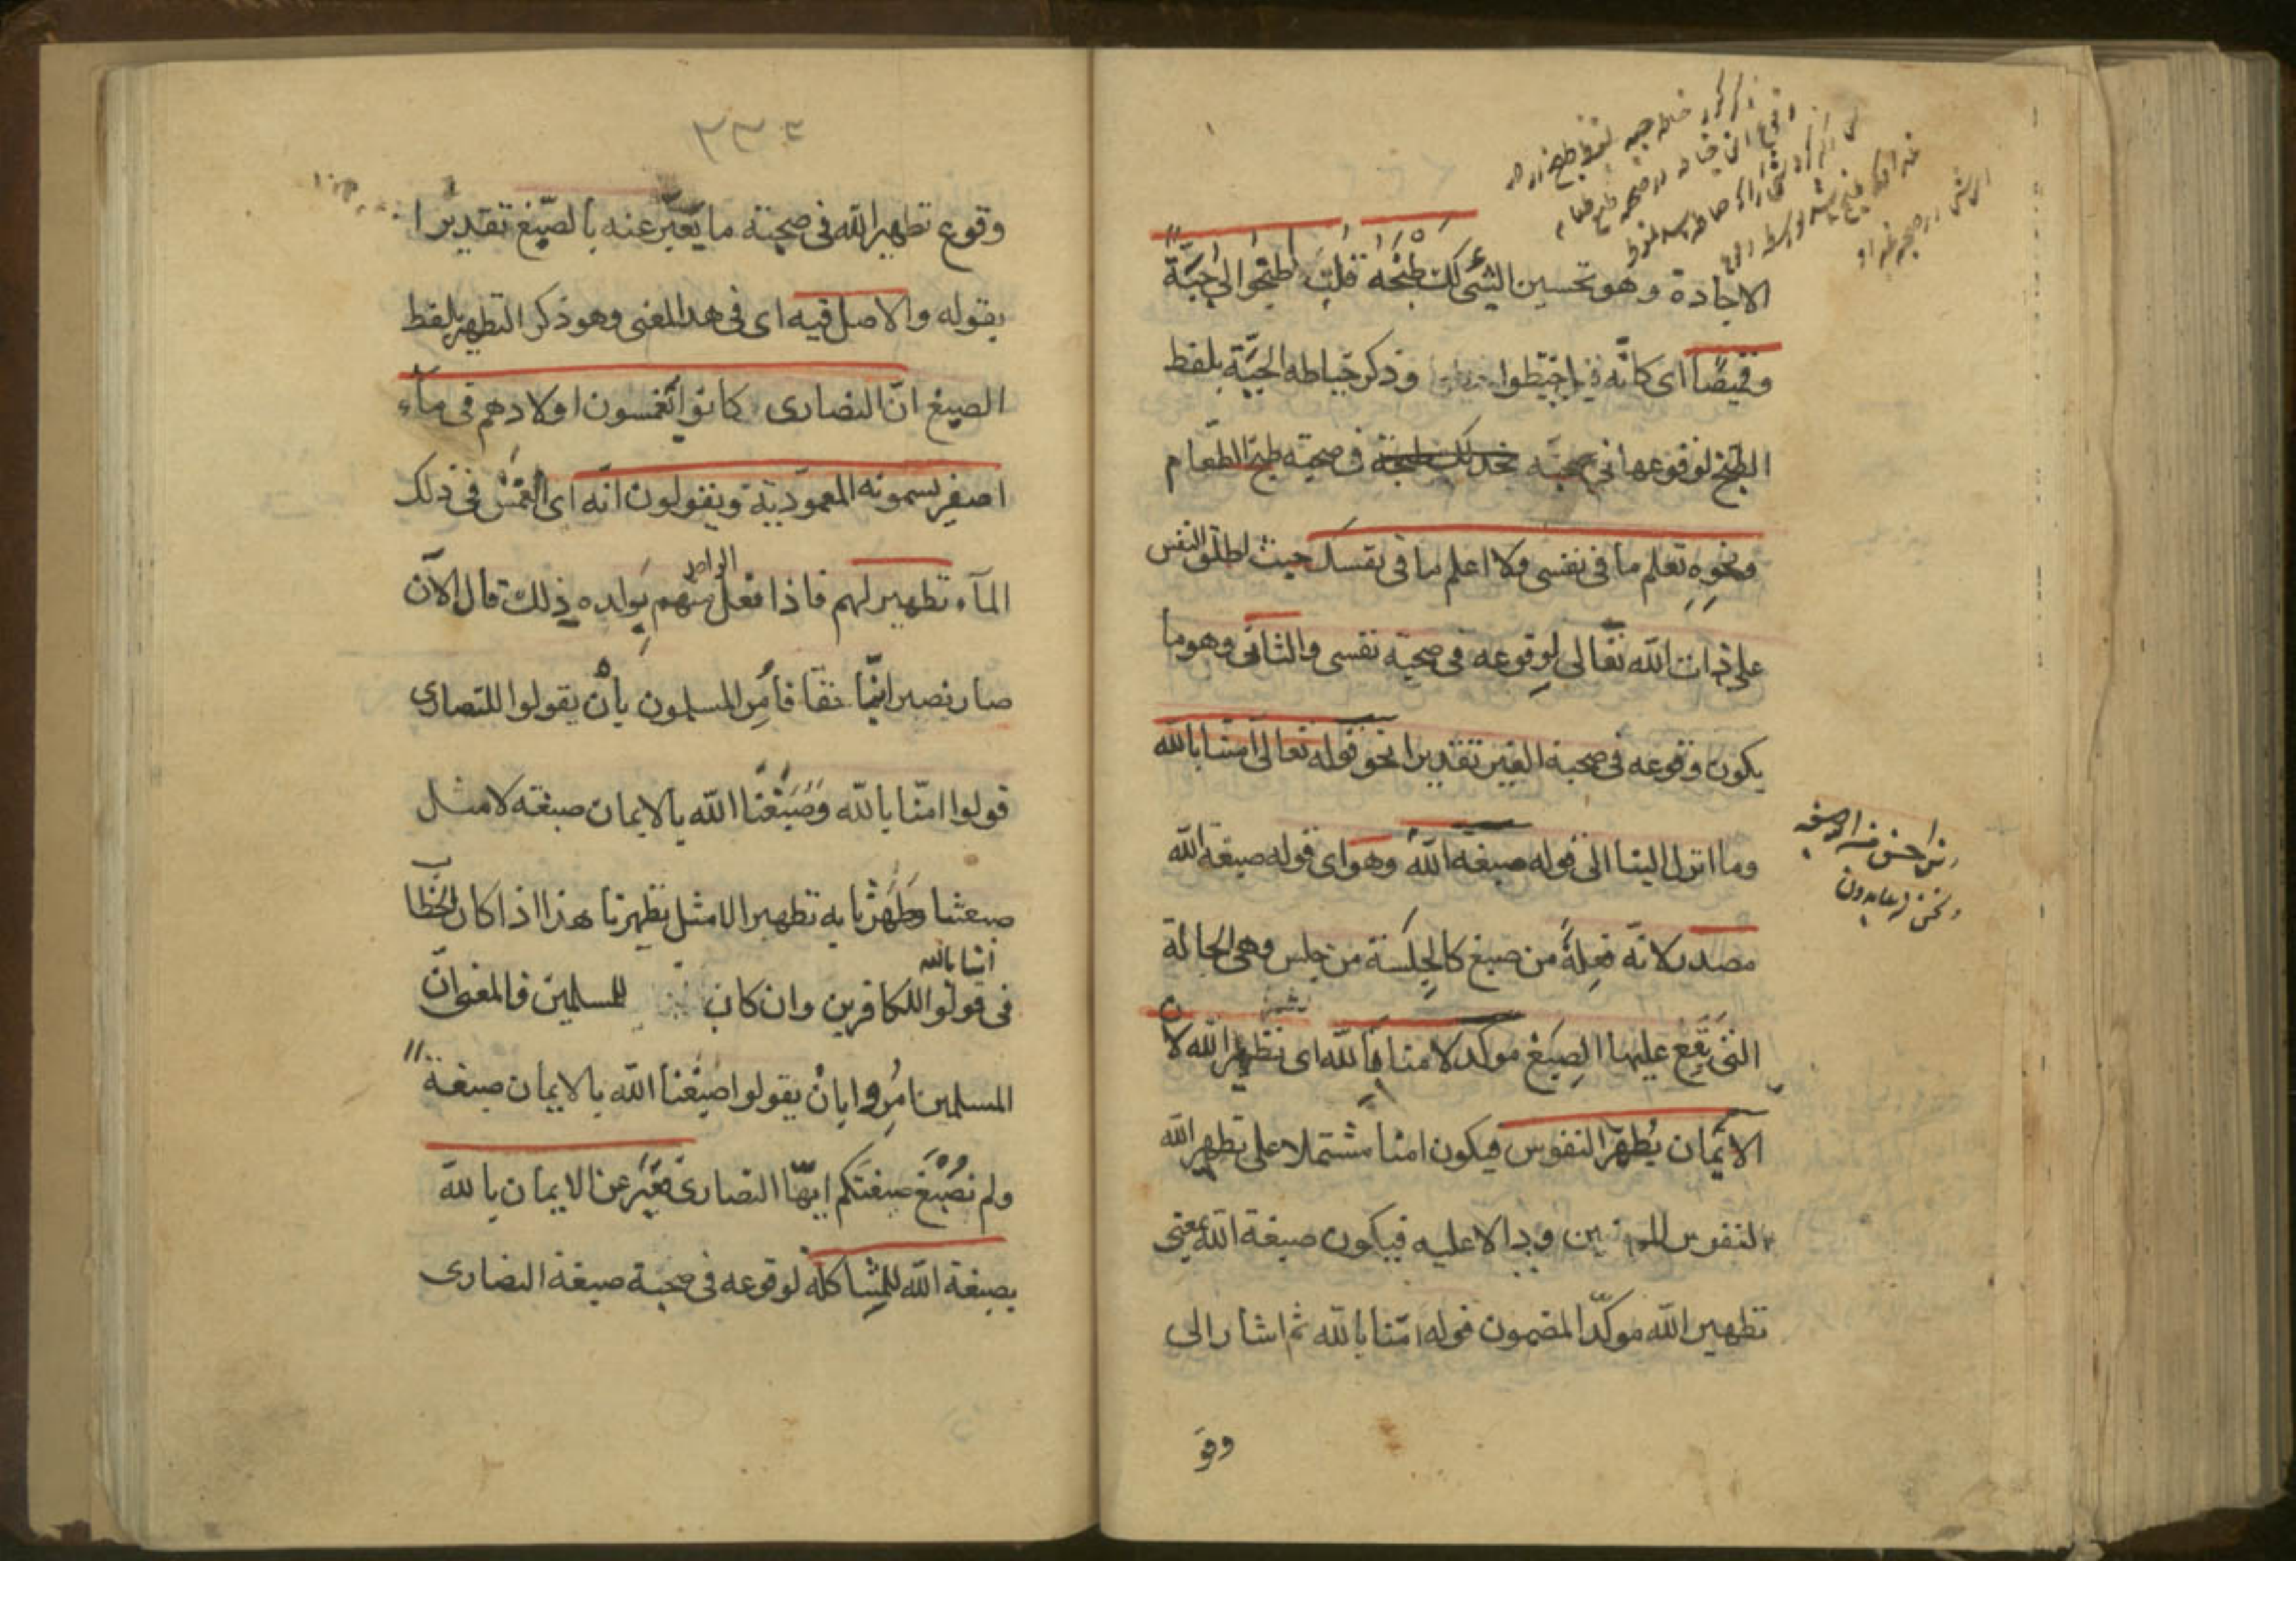 الاجادة وهو تحسين الشئ لك طبخه قلت اطبخوا لى جبّة
وقميصًا اى كانّه اخيطوا وذكر خياطه الجبّة بلفظ
الطبخ لوقوعها فى صحبة طبخ الطعام
ونحوه تعلم ما فى نفسى ولا اعلم ما فى نفسك حيث اطلق النفس
على ذات الله تعالى لوقوعه فى صحبة نفسى والثانى وهو ما
يكون وقوعه فى صحبة الغير تقديرا نحو قوله تعالى امنّا بالله
وما انزل الينا الى قوله صبغة الله وهو اى قوله صبغة الله
مصدر لانّه فِعلة من صبغ كالجِلسة من جلس وهى الحالة
التى يَقَع عليها الصبغ موكد لامنا بالله اى تطهير الله لان
الايمان يُطهّر النفوس فيكون امنا مشتملا على تطهير الله
لنفوس المومنين ودالا عليه فيكون صبغة الله بمعنى
تطهير الله موكّدا لمضمون قوله امنّا بالله ثم اشار الى
وقو
ومن احسن من الله صبغه
ونحن له عابدون
وقوع تطهير الله فى صحبة ما يُعبّر عنه بالصّبغ تقديرا
بقوله والاصل فيه اى فى هذا المعنى وهو ذكر التطهير بلفظ
الصبغ انّ النصارى كانوا يَغمسون اولادهم فى مآء
اصفر يسمونه المعموديّة ويقولون انّه اى الغمس فى ذلك
المآء تطهير لهم فاذا فعل الواحد منهم بولده ذلك قال الآن
صار نصرانيّا حقا فاُمِر المسلمون بانْ يقولوا للنصارى
قولوا امنّا بالله وصَبَغَنا الله بالايمان صبغة لا مثل
صبغتنا وطهّرنا به تطهيرا لا مثل تطهيرنا هذا اذا كان الخطاب
فى قولوا امنّا بالله للكافرين وان كان للمسلمين فالمعنى انّ
المسلمين اُمِروا بانْ يقولوا صبغنا الله بالايمان صبغة
ولم نُصْبَغ صبغتكم ايّها النصارى فعُبّر عن الايمان بالله
بصبغة الله للمشاكلة لوقوعه فى صحبة صبغة النصارى